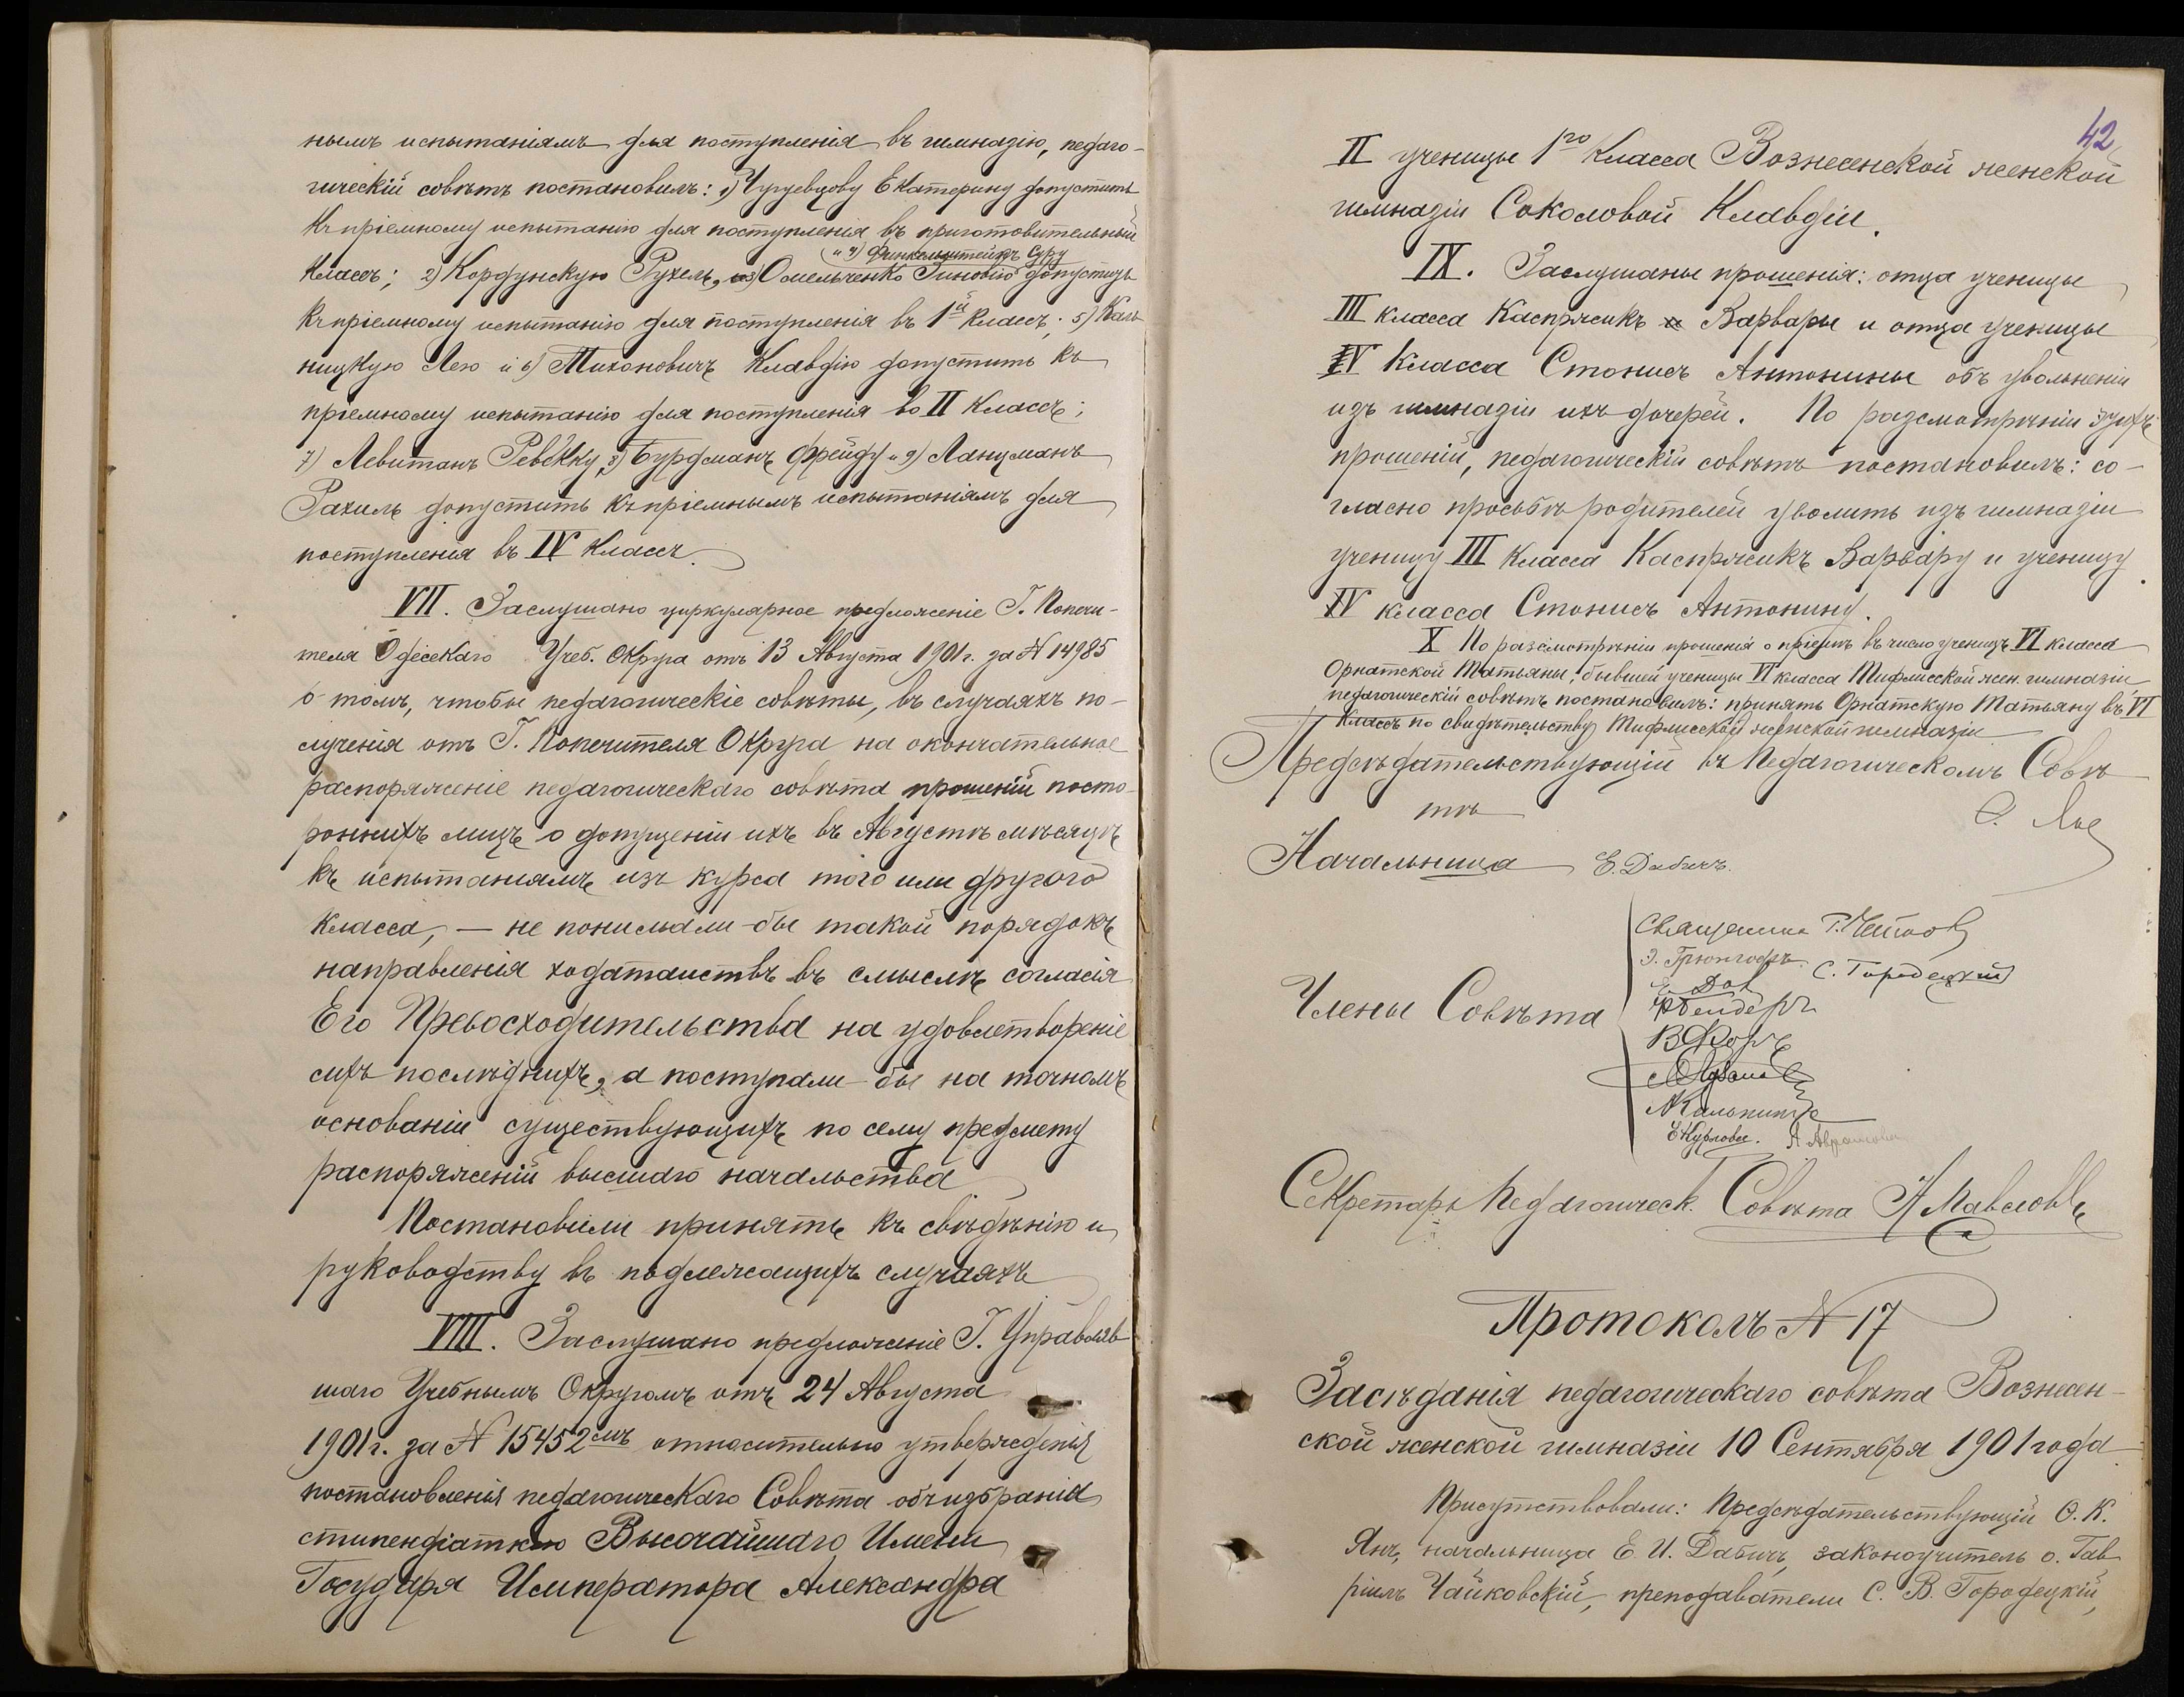 нымъ испытаніямъ для поступленія въ гимназію, педаго-
гическій совѣтъ постановилъ: 1) Чугуевцову Екатерину допустить
къ пріемному испытанію для поступленія въ приготовительный
и 4) Финкельштейнъ Суру
классъ; 2) Кордунскую Рухель, 3) Омельченко Зиновію допустить
къ пріемному испытанію для поступленія въ 1й классъ; 5) Каль-
ницкую Лею и 6) Тихоновичъ Клавдію допустить къ
пріемному испытанію для поступленія во II классъ;
7) Левитанъ Ревекку, 8) Бурдманъ Фрейду и 9) Ланцманъ
Рахиль допустить къ пріемнымъ испытаніямъ для
поступленія въ IV классъ.
VII. Заслушано циркулярное предложеніе Г. Попечи-
теля Одесскаго Учеб. Округа отъ 13 Августа 1901 г. за № 14985
о томъ, чтобы педагогическіе совѣты, въ случаяхъ по-
лученія отъ Г. Попечителя Округа на окончательное
распоряженіе педагогическаго совѣта прошеній посто-
роннихъ лицъ о допущеніи ихъ въ Августѣ мѣсяцѣ
къ испытаніямъ изъ курса того или другого
класса, — не понимали-бы такой порядокъ
направленія ходатайствъ въ смыслѣ согласія
Его Превосходительства на удовлетвореніе
сихъ послѣднихъ, а поступали-бы на точномъ
основаніи существующихъ по сему предмету
распоряженій высшаго начальства
Постановили принять къ свѣдѣнію и
руководству въ подлежащихъ случаяхъ
VIII. Заслушано предложеніе Г. Управляв-
шаго Учебнымъ Округомъ отъ 24 Августа
1901 г. за № 15452мъ относительно утвержденія
постановленія педагогическаго Совѣта объ избраніи
стипендіаткою Высочайшаго Имени
Государя Императора Александра
42
II ученицы 1го класса Вознесенской женской
гимназіи Соколовой Клавдіи.
IX. Заслушаны прошенія: отца ученицы
III класса Каспржикъ Варвары и отца ученицы
IV класса Стонисъ Антонины объ увольненіи
изъ гимназіи ихъ дочерей. По разсмотрѣніи этихъ
прошеній, педагогическій совѣтъ постановилъ: со-
гласно просьбѣ родителей уволить изъ гимназіи
ученицу III класса Каспржикъ Варвару и ученицу
IV класса Стонисъ Антонину.
X По разсмотрѣніи прошенія о пріемѣ въ число ученицъ VI класса
Орнатской Татьяны, бывшей ученицы VI класса Тифлисской жен. гимназіи
педагогическій совѣтъ постановилъ: принять Орнатскую Татьяну въ VI
классъ по свидѣтельству Тифлисской женской гимназіи
Предсѣдательствующій въ Педагогическомъ Совѣ-
тѣ
Начальница Е. Дабичъ.
Священникъ
С. Городецкій
Члены Совѣта
Секретарь Педагогическ. Совѣта А Павловъ
Протоколъ № 17
Засѣданія педагогическаго совѣта Вознесен-
ской женской гимназіи 10 Сентября 1901 года
Присутствовали: Предсѣдательствующій О. К.
Янъ, начальница Е. И. Дабичъ, законоучитель о. Гав-
ріилъ Чайковскій, преподаватели С. В. Городецкій,